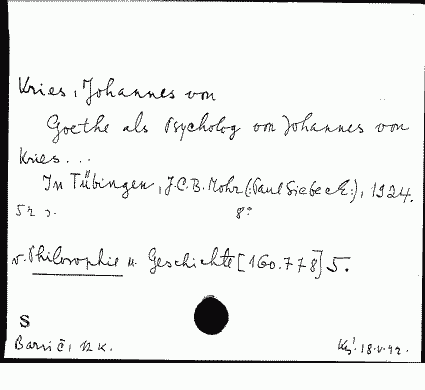 Kries, Johannes von
Goethe als Psycholog von Johannes von
Kries...
In Tübingen, J.C.B. Mohr (:Paul Siebeck:), 1924.
52 8°
v. Philosophie u. Geschichte [160.778] 5.
S
Barrič, NK. 18.V.42.